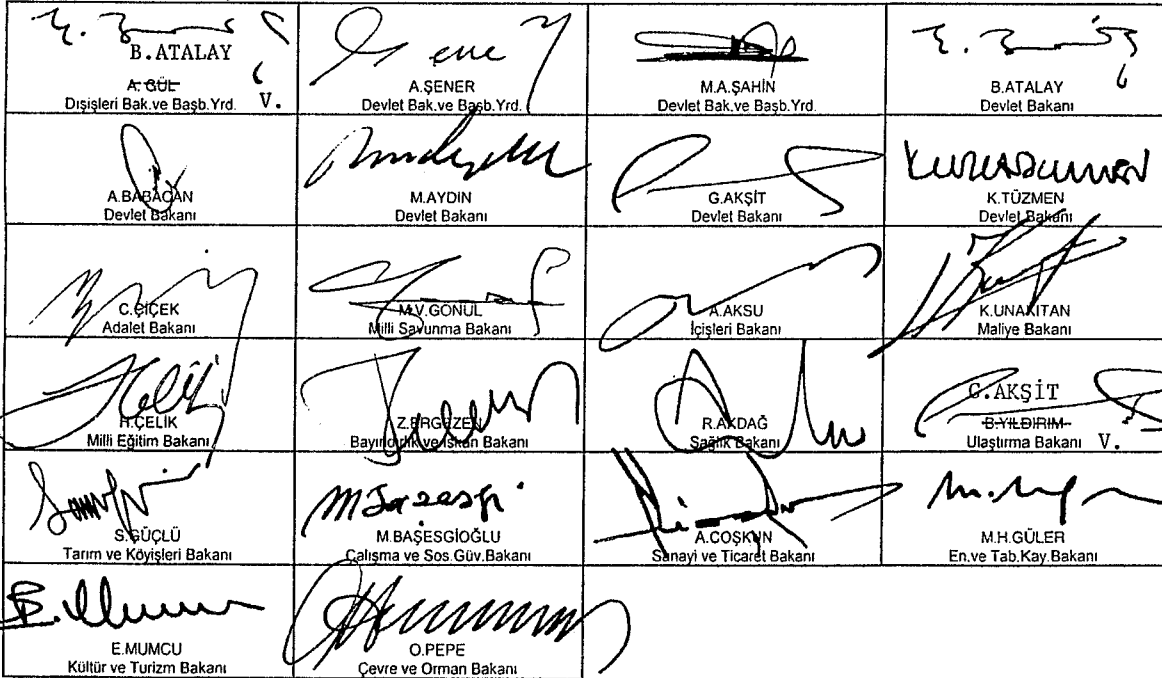 B.ATALAY
A.GÜL
Dışişleri Bak.ve Başb.Yrd. V.
A.ŞENER
Devlet Bak.ve Başb.Yrd.
M.A.ŞAHİN
Devlet Bak.ve Başb.Yrd.
B.ATALAY
Devlet Bakanı
A.BABACAN
Devlet Bakanı
M.AYDIN
Devlet Bakanı
G.AKŞİT
Devlet Bakanı
K.TÜZMEN
Devlet Bakanı
C.ÇİÇEK
Adalet Bakanı
M.V.GÖNÜL
Milli Savunma Bakanı
A.AKSU
İçişleri Bakanı
K.UNAKITAN
Maliye Bakanı
H.ÇELİK
Milli Eğitim Bakanı
Z.ERGEZEN
Bayındırlık ve İskan Bakanı
R.AKDAĞ
Sağlık Bakanı
G.AKŞİT
B.YILDIRIM
Ulaştırma Bakanı V.
S.GÜÇLÜ
Tarım ve Köyişleri Bakanı
M.BAŞESGİOĞLU
Çalışma ve Sos.Güv.Bakanı
A.COŞKUN
Sanayi ve Ticaret Bakanı
M.H.GÜLER
En.ve Tab.Kay.Bakanı
E.MUMCU
Kültür ve Turizm Bakanı
O.PEPE
Çevre ve Orman Bakanı